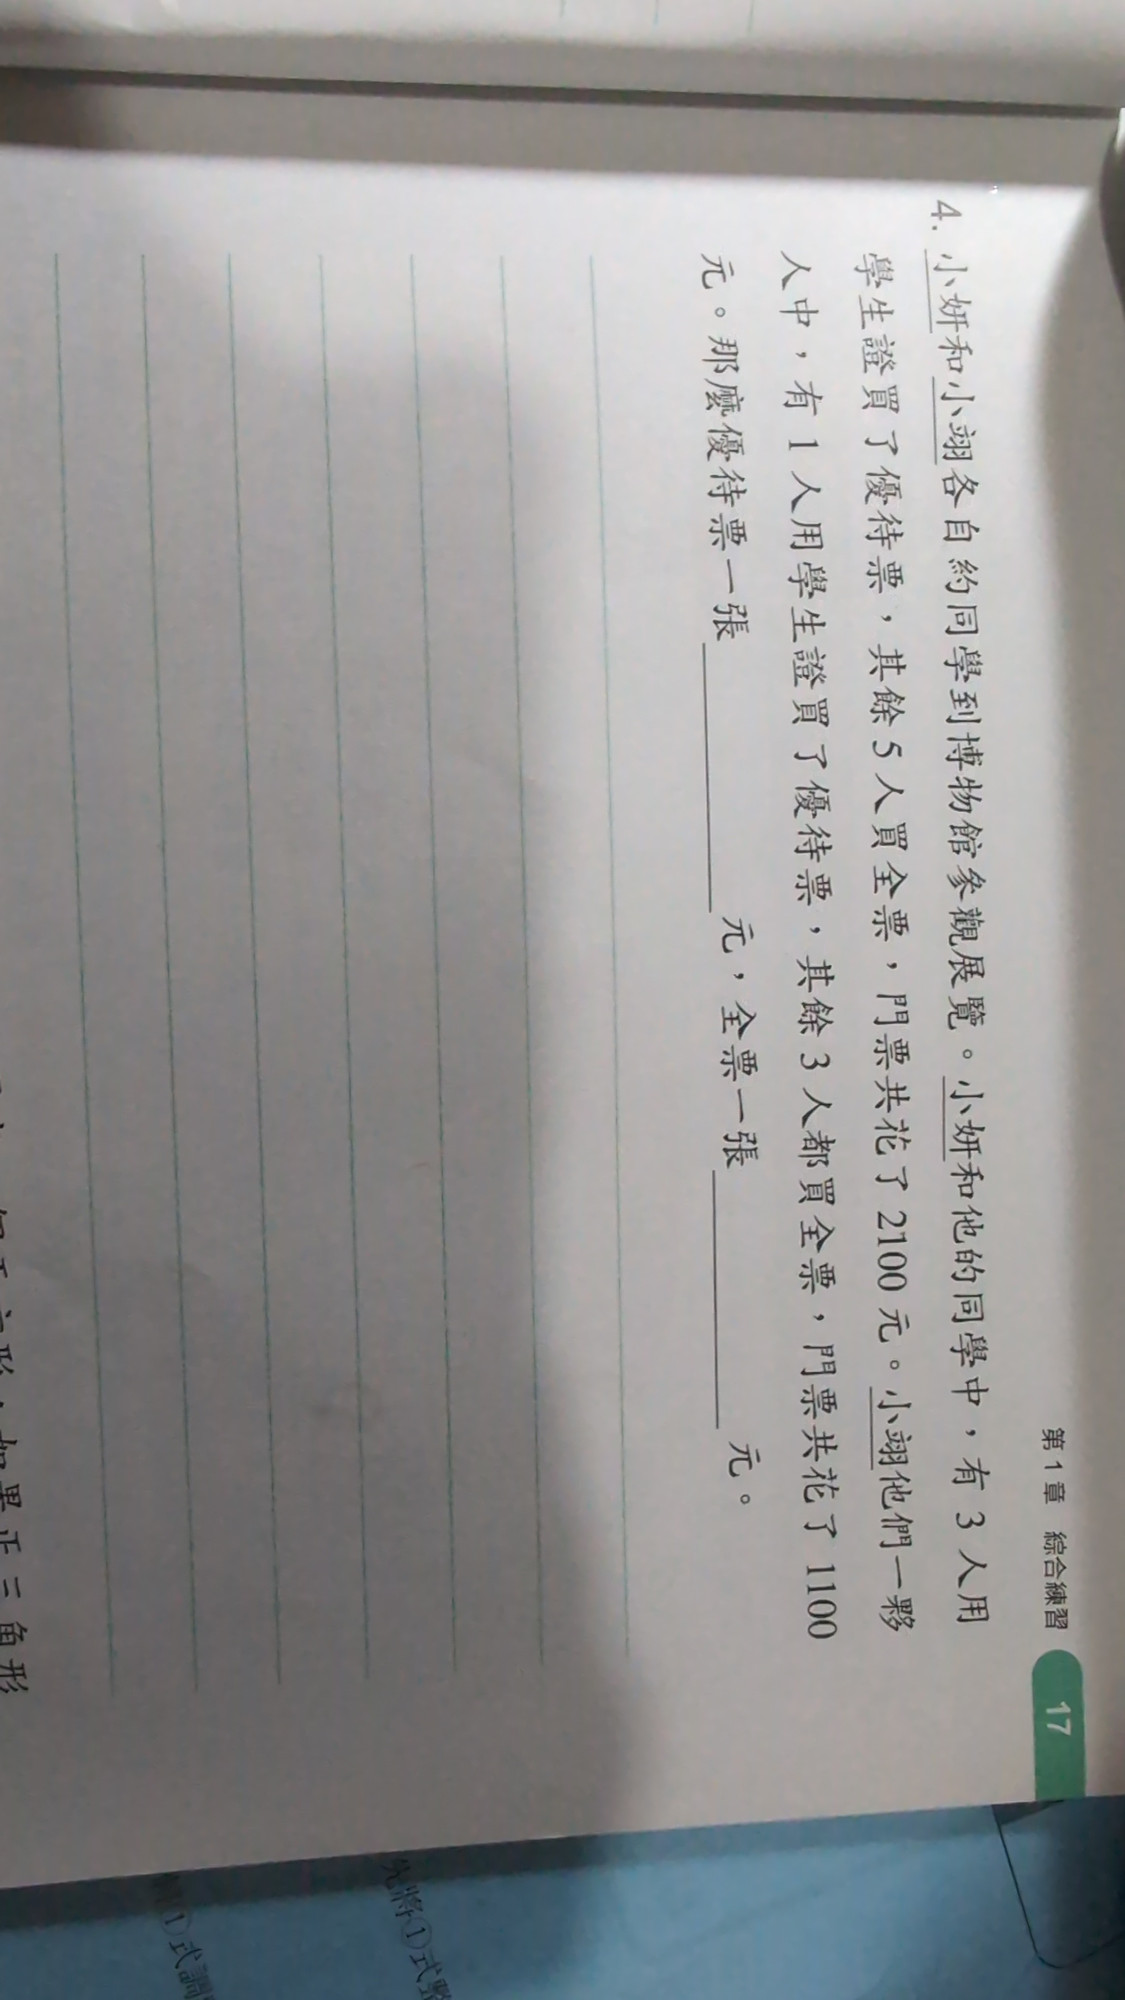 第1章 綜合練習 17
4. 小妍和小翊各自約同學到博物館參觀展覽。小妍和他的同學中，有3人用
學生證買了優待票，其餘5人買全票，門票共花了2100元。小翊他們一夥
人中，有1人用學生證買了優待票，其餘3人都買全票，門票共花了1100
元。那麼優待票一張 元，全票一張 元。
如果正三角形
先將①式
①式